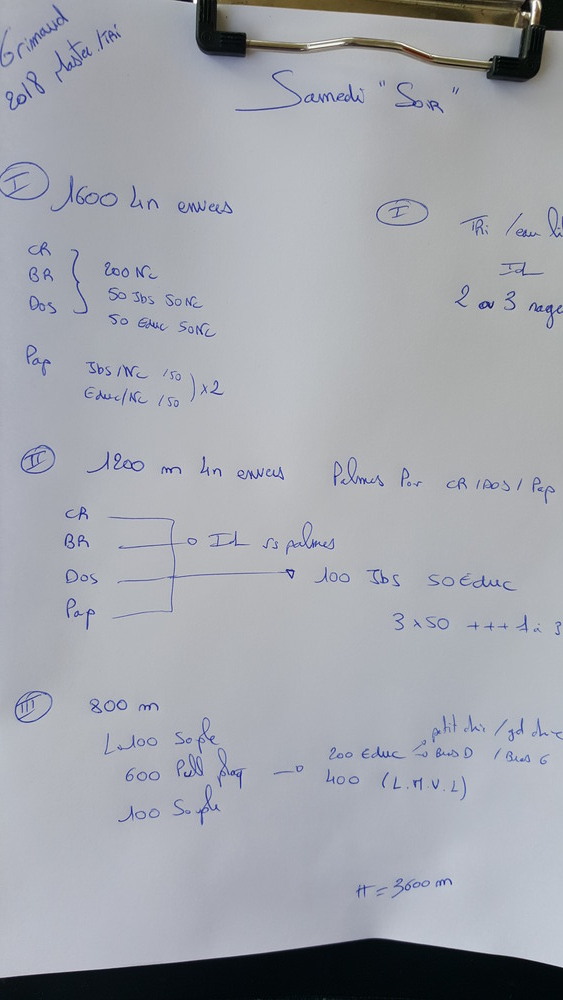 Grimaud
2018 Master/TRi
Samedi "Soir"
I 1600 4n envers
CR
BR
Dos
200 Nc
50 Jbs 50Nc
50 Educ 50Nc
Pap
Jbs/Nc /50
Educ/Nc /50
x2
I TRi /eau li
Id
2 ou 3 nage
II 1200 m 4n envers Palmes Pour CR/DOS/Pap
CR
BR
Dos
Pap
Id ss palmes
100 Jbs 50Educ
3x50 +++ 1 à 3
III 800 m
100 Souple
600 Pull plaq
200 Educ petit chien /gd chie
Bras D / Bras G
400 (L.M.V.L)
100 Souple
H = 3600 m